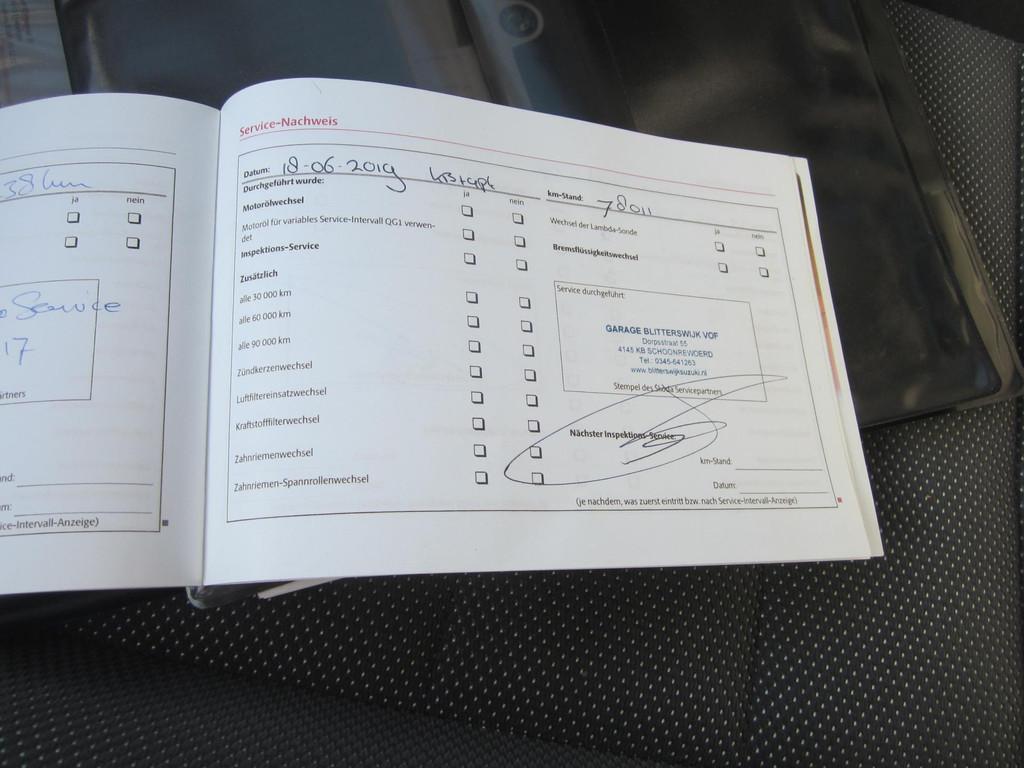 38 km
ja nein
o Service
17
artners
nd:
m:
ice-Intervall-Anzeige)
Service-Nachweis
Datum: 18-06-2019
km-Stand: 78011
Durchgeführt wurde:
ja nein
Motorölwechsel
Motoröl für variables Service-Intervall QG1 verwen-
det
Inspektions-Service
Zusätzlich
alle 30 000 km
alle 60 000 km
alle 90 000 km
Zündkerzenwechsel
Luftfiltereinsatzwechsel
Kraftstofffilterwechsel
Zahnriemenwechsel
Zahnriemen-Spannrollenwechsel
ja nein
Wechsel der Lambda-Sonde
Bremsflüssigkeitswechsel
Service durchgeführt:
GARAGE BLITTERSWIJK VOF
Dorpsstraat 55
4145 KB SCHOONREWOERD
Tel.: 0345-641263
www.blitterswijksuzuki.nl
Stempel des Škoda Servicepartners
Nächster Inspektions-Service:
km-Stand:
Datum:
(je nachdem, was zuerst eintritt bzw. nach Service-Intervall-Anzeige)